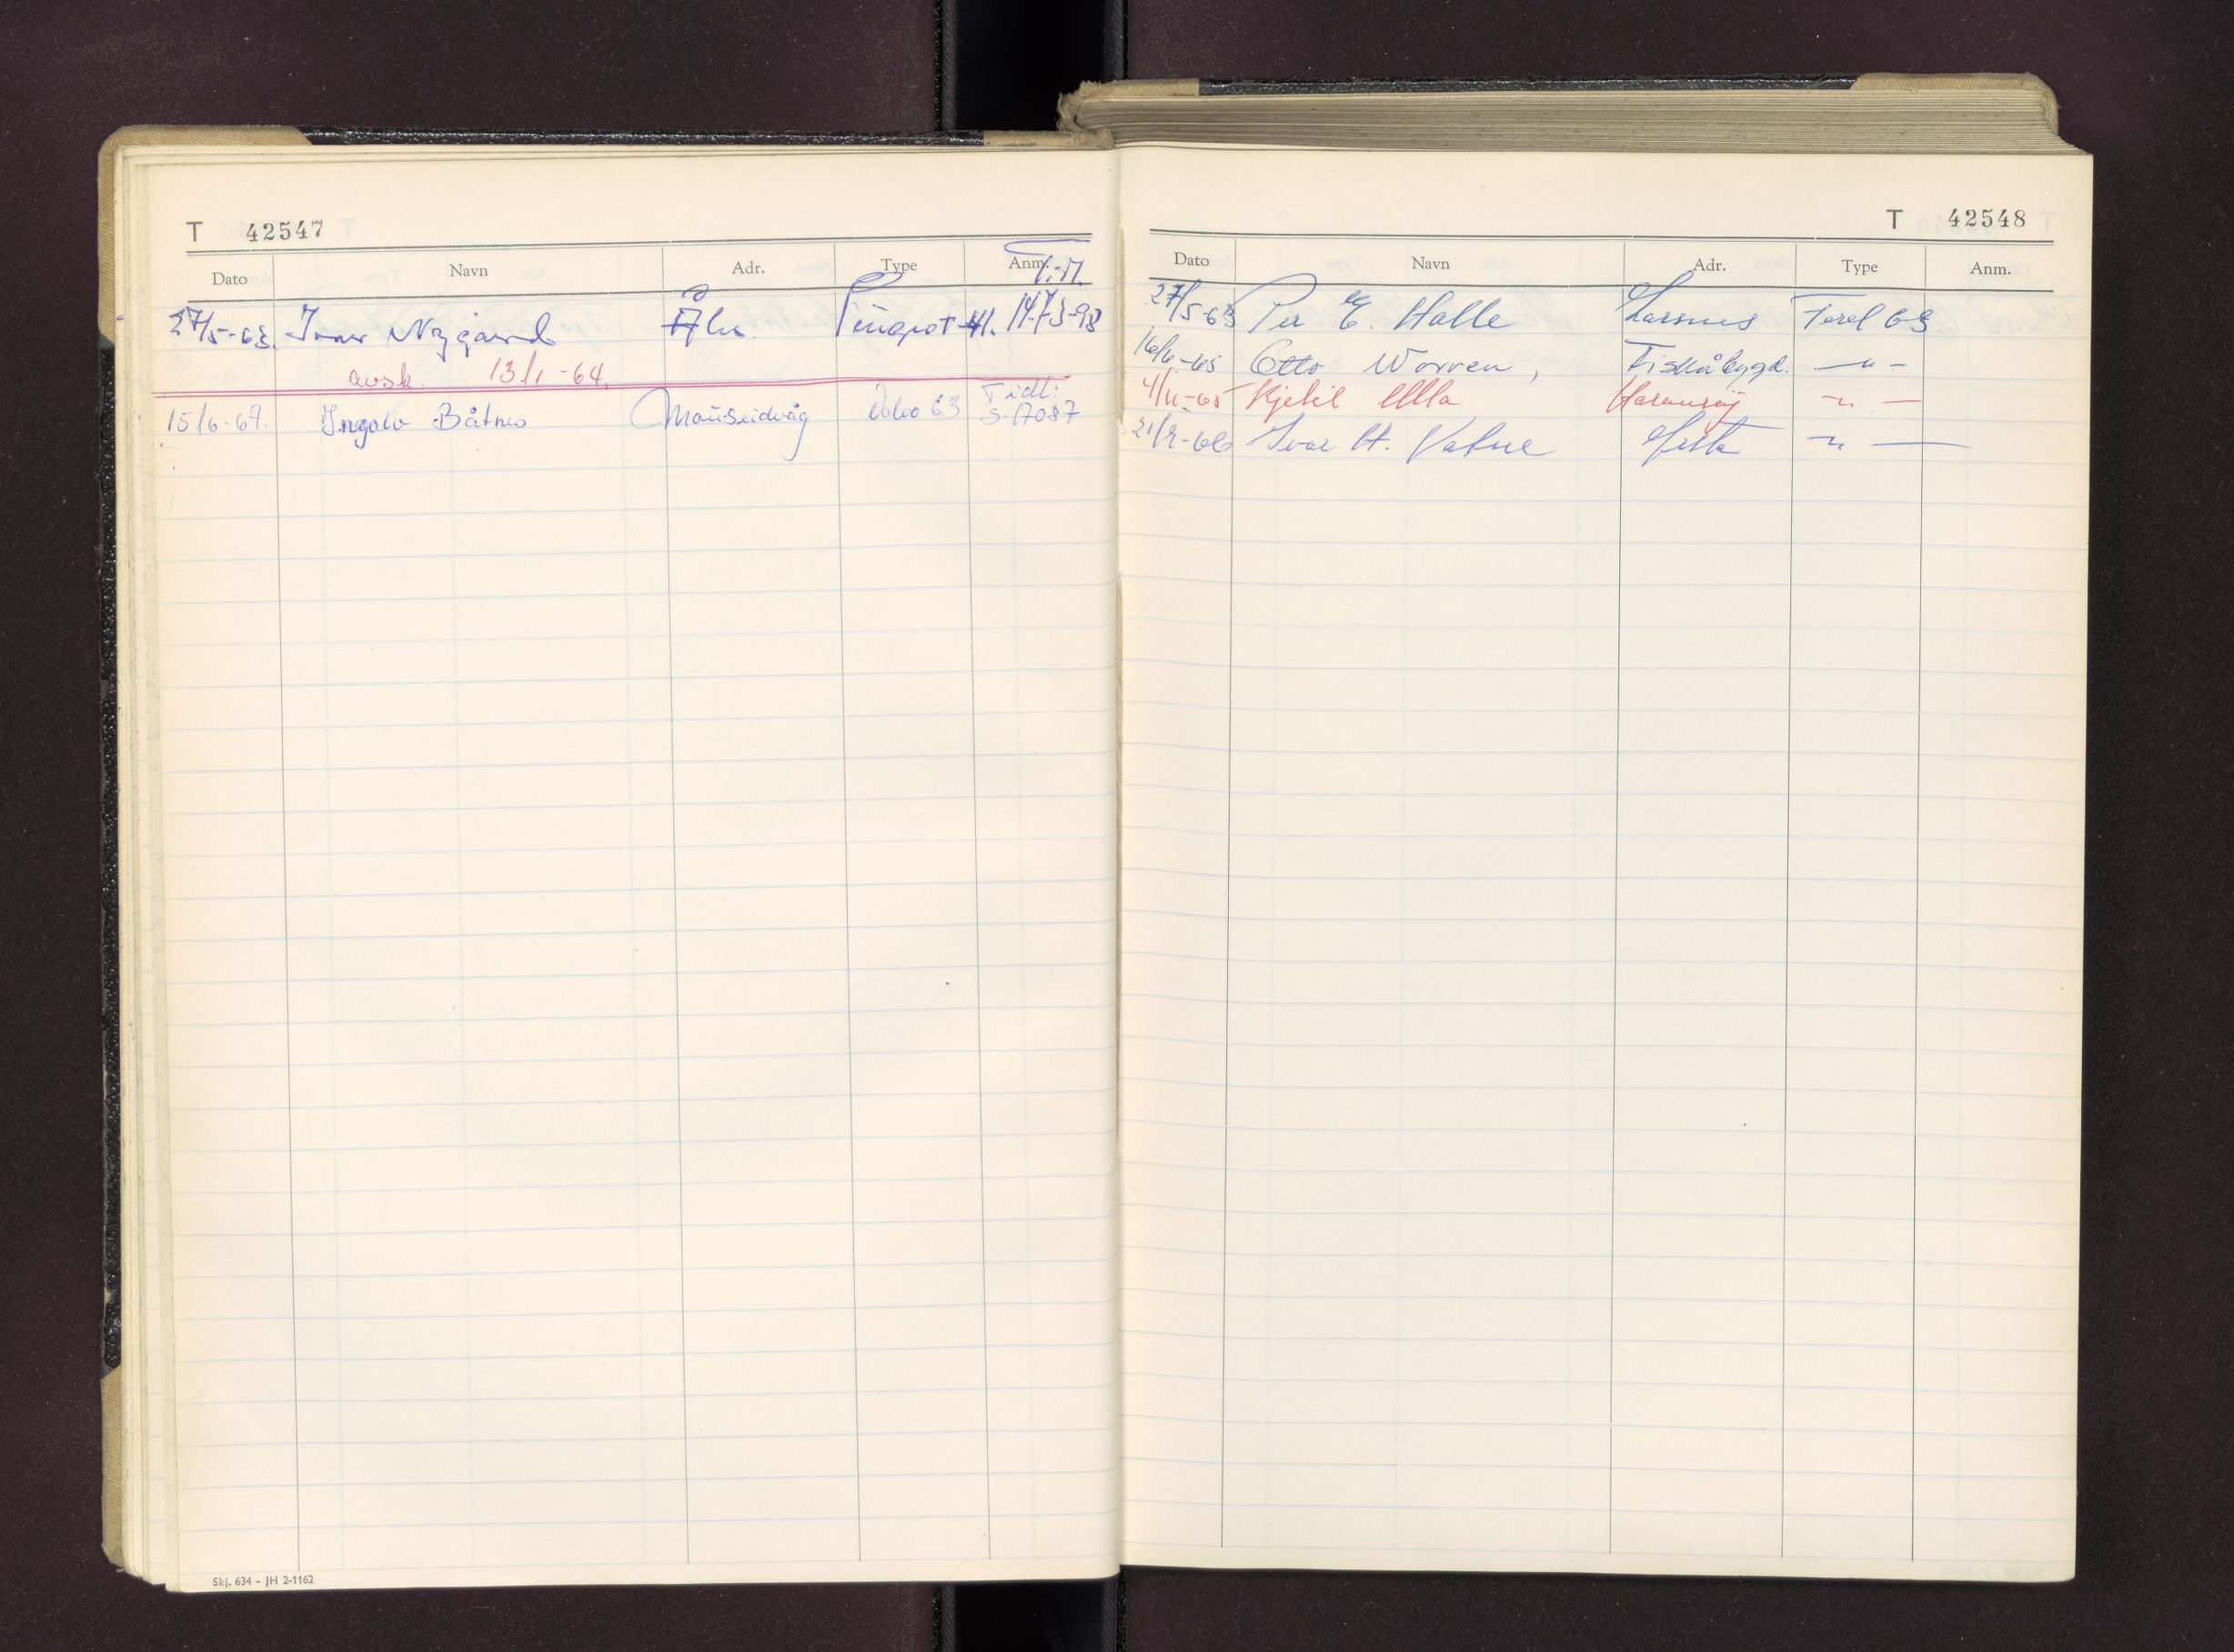 T 42547
Dato Navn Adr. Type Anm.
27/5-63. Ivar Nygård
avsk. 13/1-64.
15/6-67. Ingolv Båtnes Mauseidvåg Volvo 63 Tidl: S-17087
Skj. 634 - JH 2-1162
T 42548
Dato Navn Adr. Type Anm.
27/5-63 Per E. Halle Larsnes Terel 63
16/6-65 Otto Worren, Fiskåbygd. —〃—
4/11-65 Kjetil Ulla Haramsøy —〃—
21/9-66 Ivar H. Vatne Ørsta —〃—